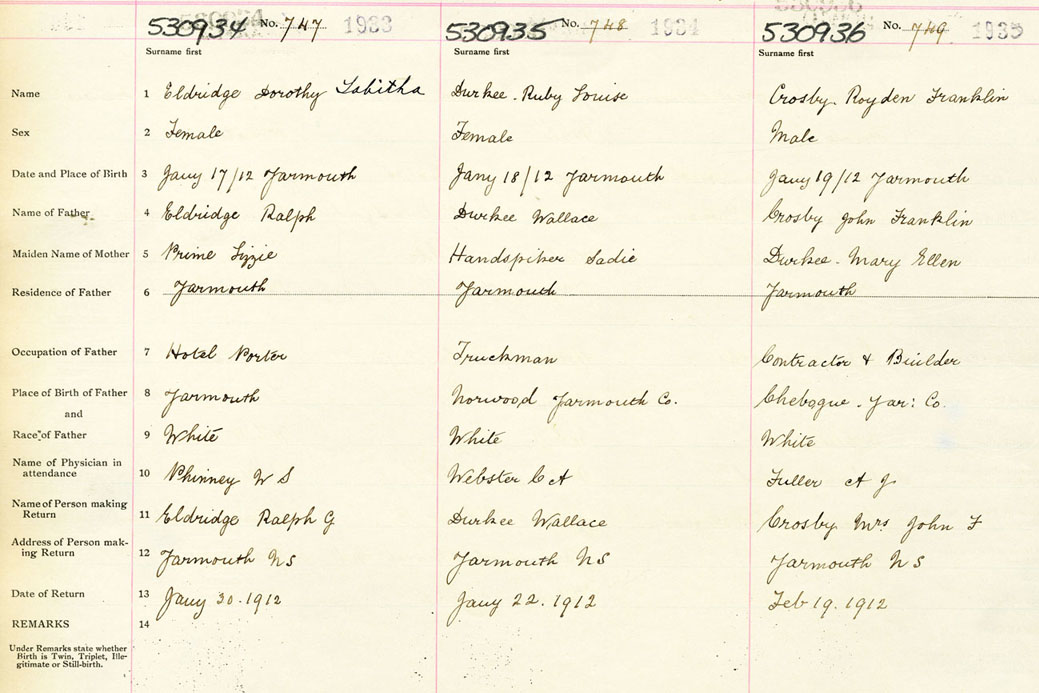 530934 No. 747 1933 530935 No. 748 1934 530936 No. 749 1935
Surname first Surname first Surname first
Name 1 Eldridge Dorothy Tabitha Durkee. Ruby Louise Crosby. Royden Franklin
Sex 2 Female Female Male
Date and Place of Birth 3 Jany 17/12 Yarmouth Jany 18/12 Yarmouth Jany 19/12 Yarmouth
Name of Father 4 Eldridge Ralph Durkee Wallace Crosby John Franklin
Maiden Name of Mother 5 Prime Lizzie Handspiker Sadie Durkee. Mary Ellen
Residence of Father 6 Yarmouth Yarmouth Yarmouth
Occupation of Father 7 Hotel Porter Truckman Contractor & Builder
Place of Birth of Father 8 Yarmouth Norwood Yarmouth Co. Chebogue. Yar: Co.
and
Race of Father 9 White White White
Name of Physician in
attendance 10 Phinney W S Webster C A Fuller A J
Name of Person making
Return 11 Eldridge Ralph G Durkee Wallace Crosby Mrs John F
Address of Person mak-
ing Return 12 Yarmouth NS Yarmouth NS Yarmouth NS
Date of Return 13 Jany 30. 1912 Jany 22. 1912 Feb 19. 1912
REMARKS 14
Under Remarks state whether
Birth is Twin, Triplet, Ille-
gitimate or Still-birth.